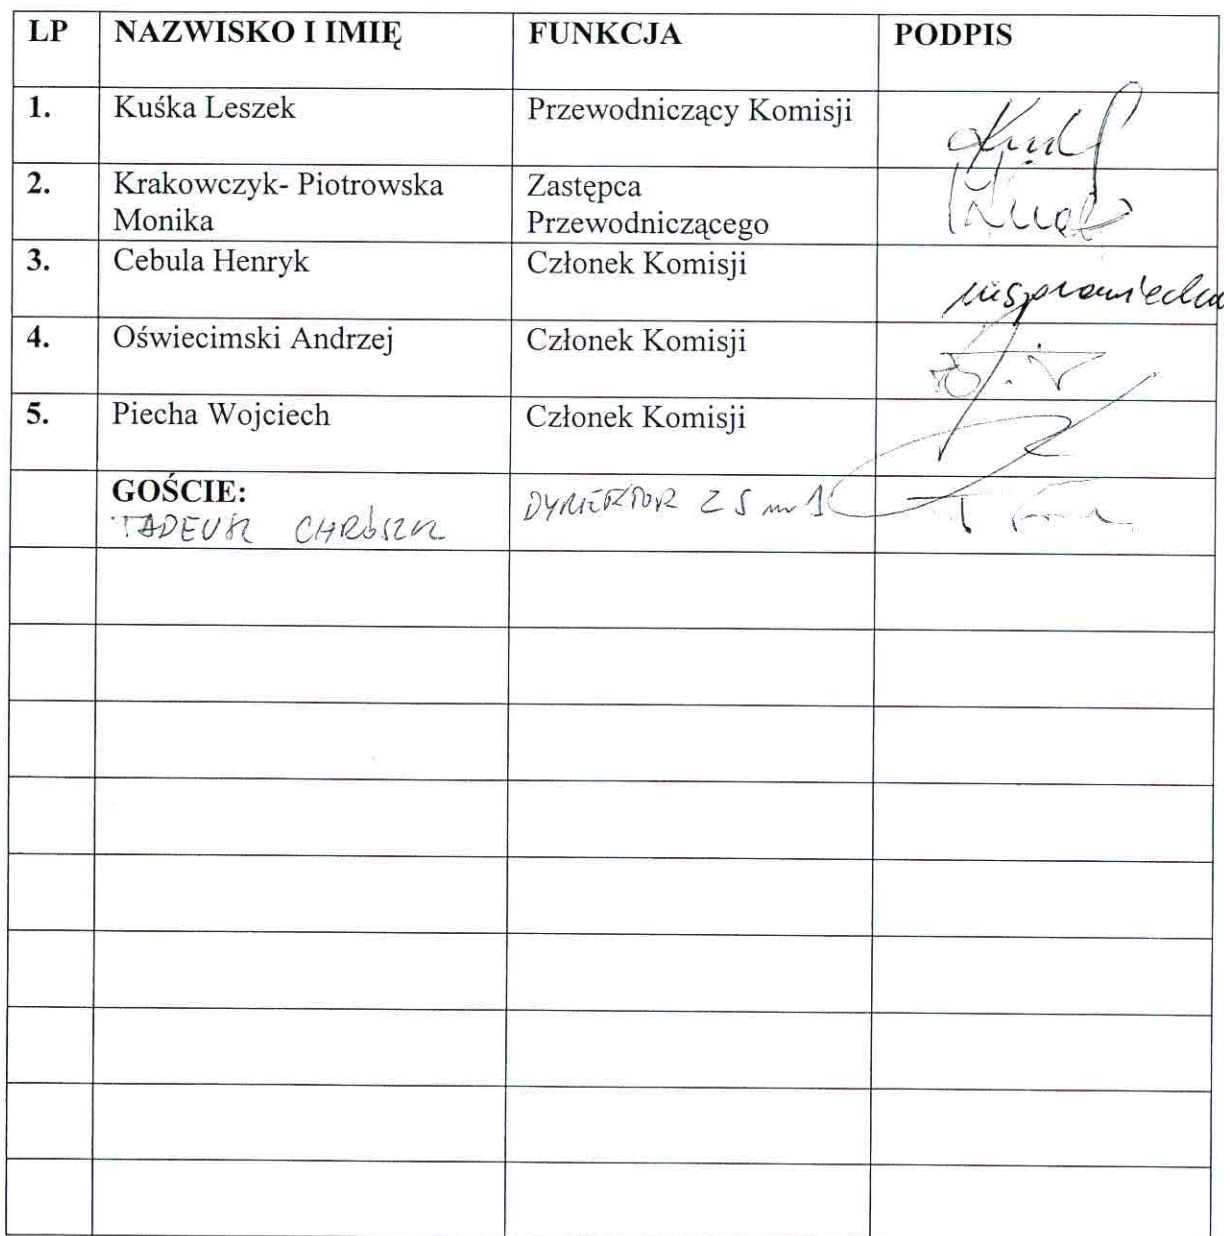 LP NAZWISKO I IMIĘ FUNKCJA PODPIS
1. Kuśka Leszek Przewodniczący Komisji
2. Krakowczyk- Piotrowska Zastępca
Monika Przewodniczącego
3. Cebula Henryk Członek Komisji
4. Oświecimski Andrzej Członek Komisji
5. Piecha Wojciech Członek Komisji
GOŚCIE:
TADEUSZ DYREKTOR ZS nr 1